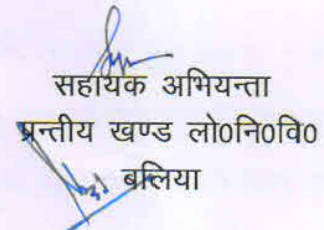 सहायक अभियन्ता
प्रन्तीय खण्ड लो0नि0वि0
बलिया